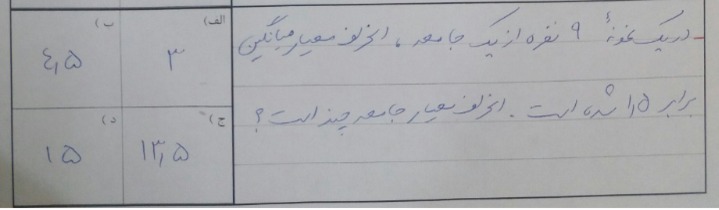 - در یک نمونهٔ ۹ نفره از یک جامعه، انحراف معیار میانگین
برابر ۱٫۵ شده است. انحراف معیار جامعه چند است؟
الف) ۳
ب) ۴٫۵
ج) ۱۳٫۵
د) ۱۵